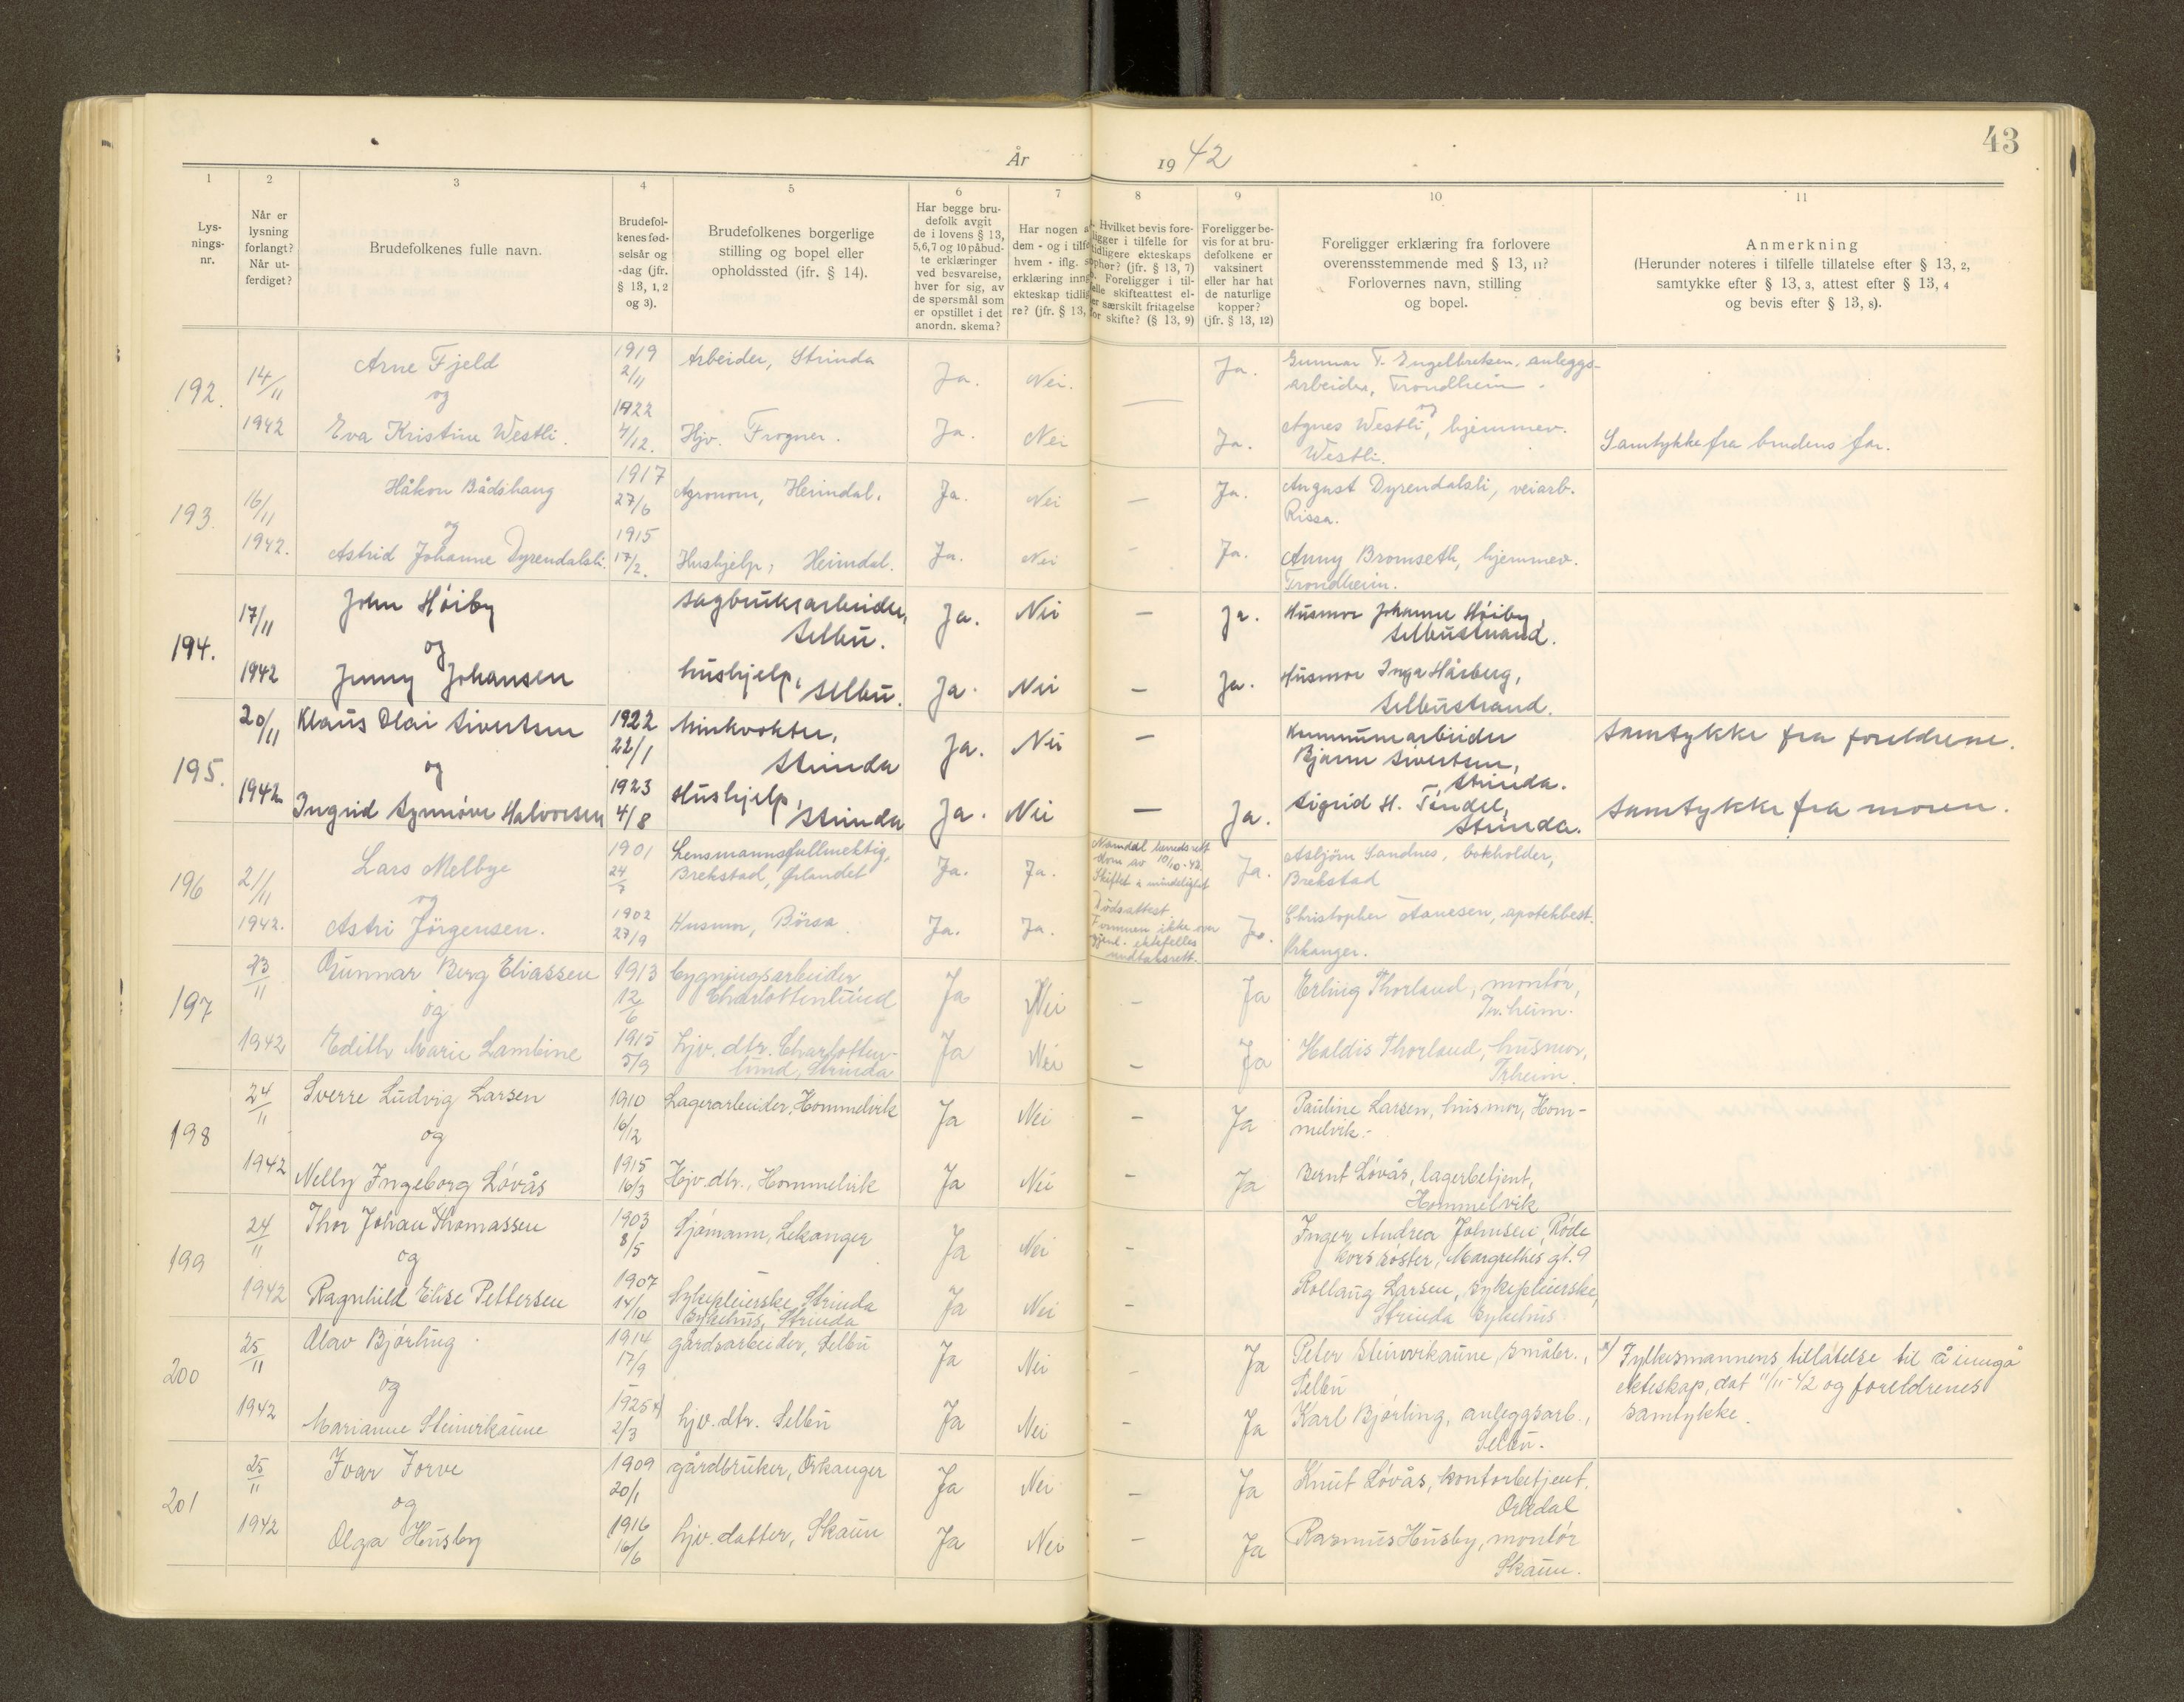 43
År 1942
1 2 3 4 5 6 7 8 9 10 11
Lys-
nings-
nr.
Når er
lysning
forlangt?
Når ut-
ferdiget?
Brudefolkenes fulle navn.
Brudefol-
kenes fød-
selsår og
-dag (jfr.
§ 13, 1, 2
og 3).
Brudefolkenes borgerlige
stilling og bopel eller
opholdssted (ifr. § 14).
Har begge bru-
defolk avgit
de i lovens § 13,
5,6,7 og 10 påbud-
te erklæringer
ved besvarelse,
hver for sig, av
de spørsmål som
er opstillet i det
anordn. skema?
Har nogen a
dem - og i tilfe
hvem - iflg. s
erklæring inng
ekteskap tidlig
re? (jfr. § 13,
Hvilket bevis fore-
ligger i tilfelle for
tidligere ekteskaps
ophør? (jfr. § 13, 7)
Foreligger i til-
felle skifteattest el-
er særskilt fritagelse
for skifte? (§ 13, 9)
Foreligger be-
vis for at bru-
defolkene er
vaksinert
eller har hat
de naturlige
kopper?
(jfr. § 13, 12)
Foreligger erklæring fra forlovere
overensstemmende med § 13, 11?
Forlovernes navn, stilling
og bopel.
Anmerkning
(Herunder noteres i tilfelle tillatelse efter § 13, 2,
samtykke efter § 13, 3, attest efter § 13, 4
og bevis efter § 13, 8).
192. 14/11 1942
Arne Fjeld 1919 2/11 Arbeider, Strinda Ja. Nei. Ja. Gunnar T. Engelbretsen, anleggs-
arbeider, Trondheim.
og
Eva Kristine Westli. 1922 4/12. Hjv. Frogner. Ja. Nei — Ja. Agnes Westli, hjemmev.
Westli.
Samtykke fra brudens far.
193. 16/11 1942.
Håkon Bådshaug 1917 27/6 Agronom, Heimdal. Ja. Nei — Ja. August Dyrendalsli, veiarb.
Rissa.
og
Astrid Johanne Dyrendalsli. 1915 17/2. Hushjelp, Heimdal. Ja. Nei - Ja. Anny Bromseth, hjemmev.
Trondheim.
194. 17/11 1942
John Høiby sagbruksarbeider,
Selbu. Ja. Nei — Ja. Husmor Johanne Høiby,
Selbustrand.
og
Jenny Johansen hushjelp,
Selbu. Ja. Nei — Ja. Husmor Inga Hårberg,
Selbustrand.
195. 20/11 1942
Klaus Olai Sivertsen 1922 22/1 Minkvokter,
Strinda Ja. Nei — Kommunearbeider
Bjarne Sivertsen,
Strinda.
Samtykke fra foreldrene.
og
Ingrid Synnøve Halvorsen 1923 4/8 Hushjelp,
Strinda Ja. Nei — Ja. Sigrid H. Tendel,
Strinda.
Samtykke fra moren.
196 21/11 1942.
Lars Melbye 1901 24/7 Lensmannsfullmektig,
Brekstad, Ørlandet Ja. Ja. Namdal herredsrett
dom av 10/10-42.
Skiftet i mindelighet Ja. Asbjørn Sandnes, bokholder,
Brekstad
og
Astri Jörgensen. 1902 27/9 Husmor, Börsa Ja. Ja. Dødsattest
Formuen ikke over
gjenl. ektefelles
undtaksrett. Ja. Christopher Aanesen, apotekbest.
Orkanger.
197 23/11 1942
Gunnar Berg Eliassen 1913 12/6 bygningsarbeider
Charlottenlund Ja Nei — Ja Erling Thorland, montör,
Tr.heim.
og
Edith Marie Lambine 1915 5/9 hjv. dtr. Charlotten-
lund, Strinda Ja Nei — Ja Haldis Thorland, husmor,
Trheim.
198 24/11 1942
Sverre Ludvig Larsen 1910 16/12 Lagerarbeider, Hommelvik Ja Nei — Ja Pauline Larsen, husmor, Hom-
melvik.-
og
Nelly Ingeborg Løvås 1915 16/3 Hjv. dtr., Hommelvik Ja Nei — Ja Bernt Løvås, lagerbetjent,
Hommelvik
199 24/11 1942
Thor Johan Thomassen 1903 8/5 Sjømann, Lekanger Ja Nei — Inger Andrea Johnsen, Røde
kors søster, Margrethes gt. 9
og
Ragnhild Elise Pettersen 1907 14/10 Sykepleierske, Strinda
Sykehus, Strinda Ja Nei — Rollaug Larsen, sykepleierske,
Strinda sykehus
200 25/11 1942
Olav Bjørling 1914 17/9 gårdsarbeider, Selbu Ja Nei — Ja Peter Steinvikaune, småbr.,
Selbu
x) Fylkesmannens tillatelse til å inngå
ekteskap, dat 11/11-42 og foreldrenes
samtykke.
og
Marianne Steinvikaune 1925 x) 2/3 hjv. dtr. Selbu Ja Nei — Ja Karl Bjørling, anleggsarb.,
Selbu.
201 25/11 1942
Ivar Jorve 1909 20/1 gårdbruker, Orkanger Ja Nei — Ja Knut Løvås, kontorbetjent,
Orkdal
og
Olga Husby 1916 16/6 hjv. datter, Skaun Ja Nei — Ja Rasmus Husby, montør
Skaun.